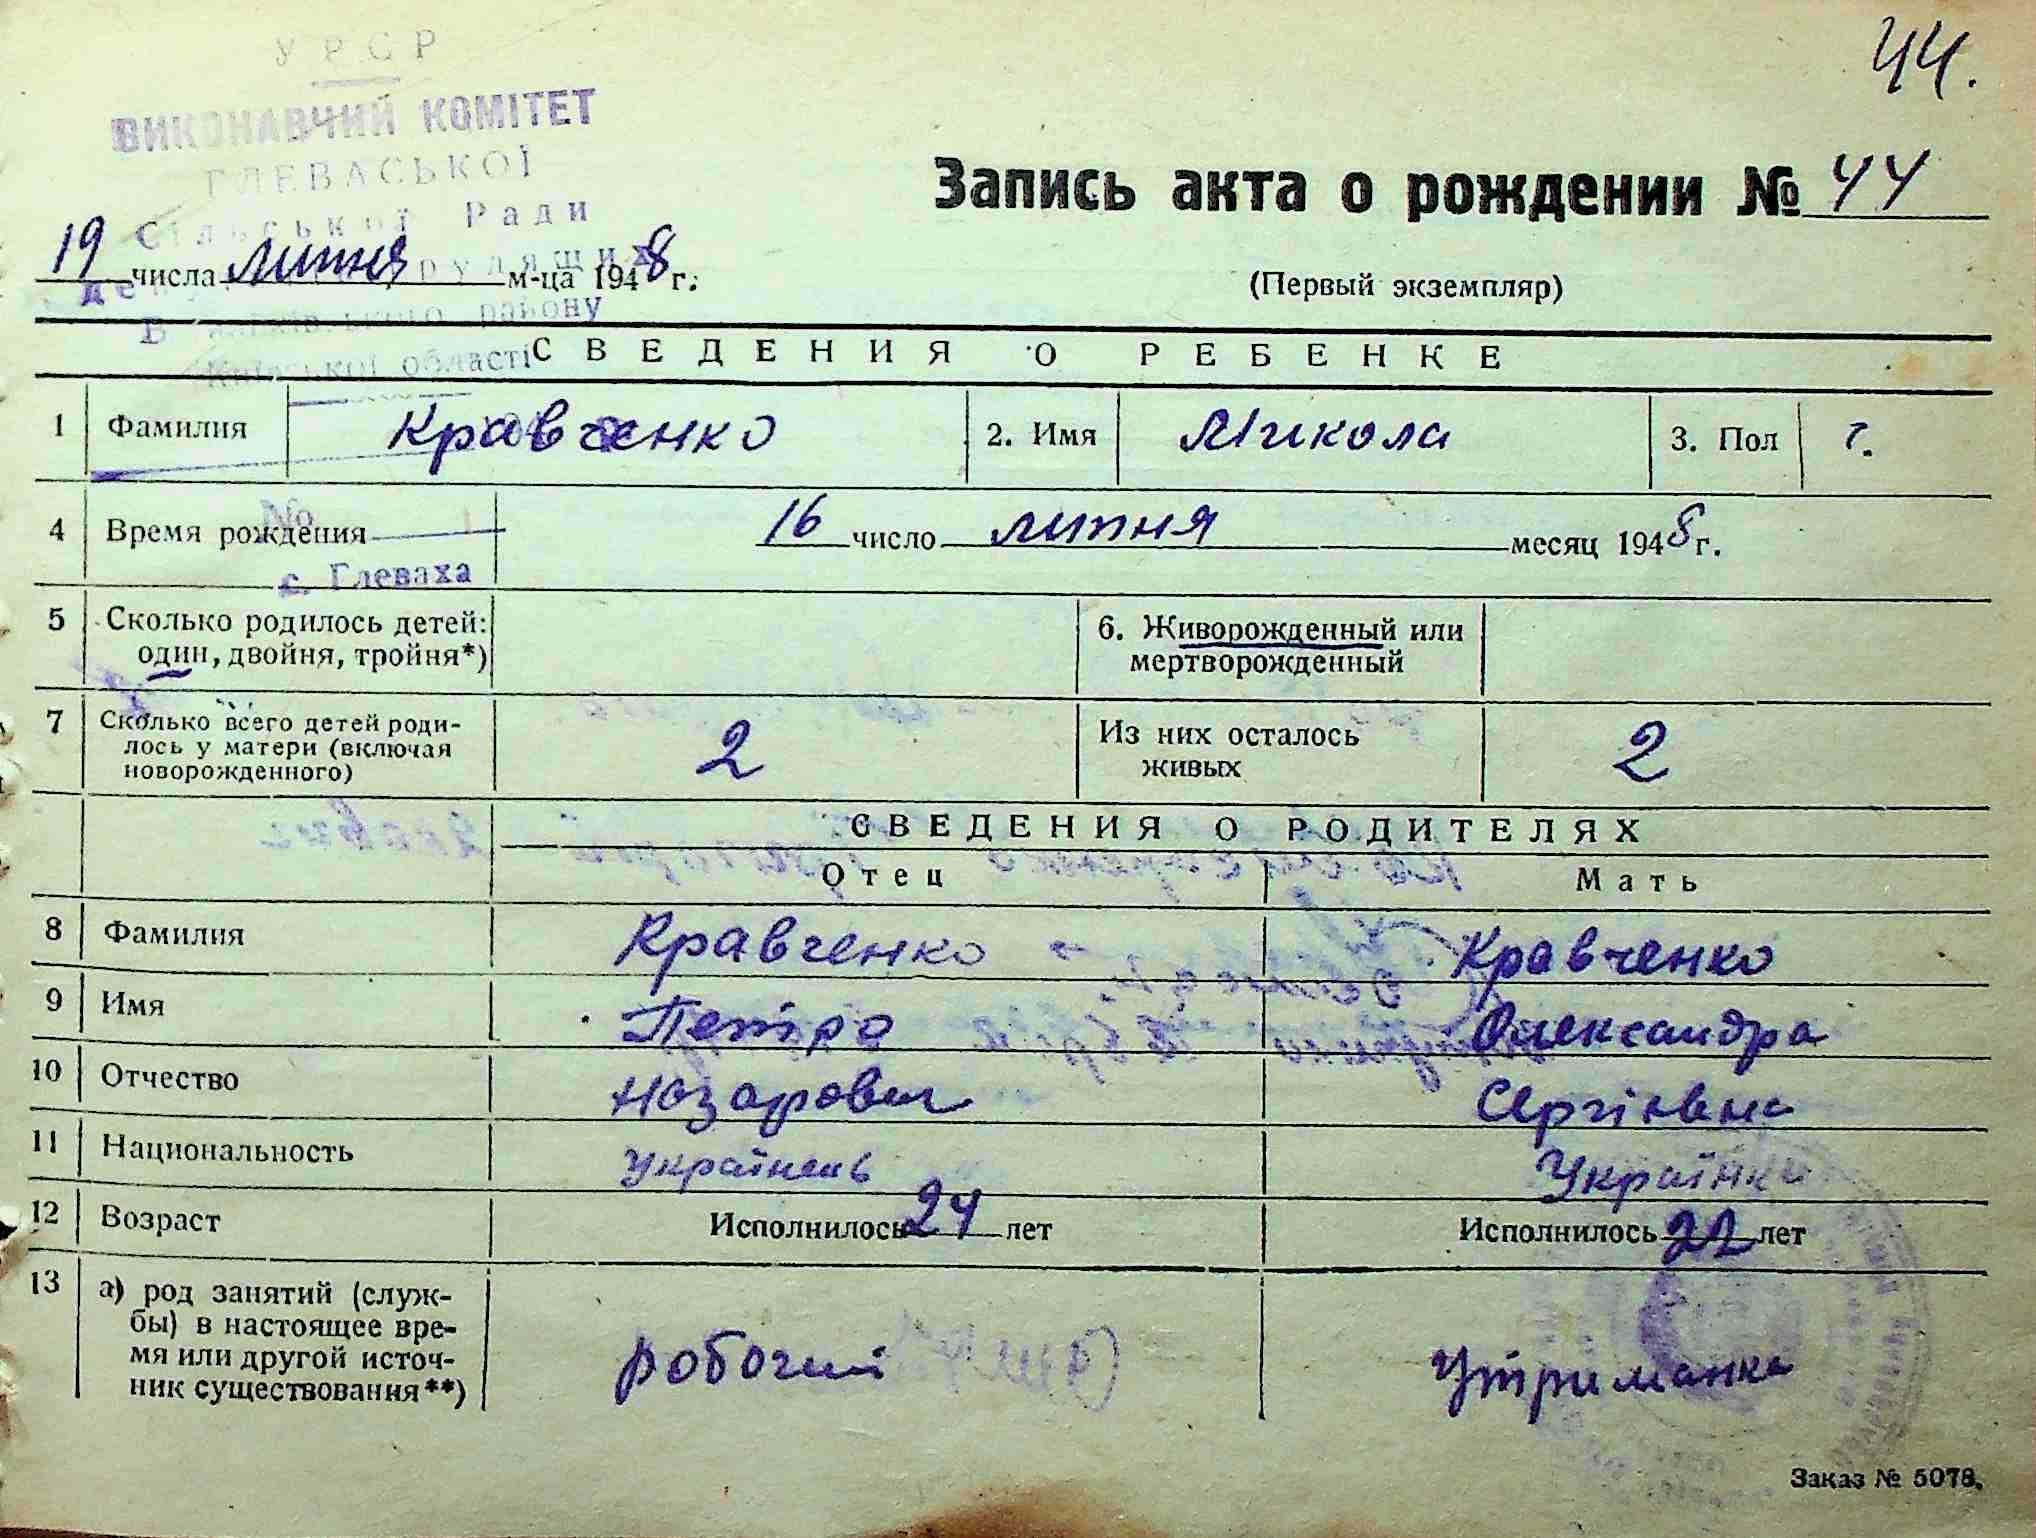 44.
УРСР
ВИКОНАВЧИЙ КОМІТЕТ
ГЛЕВАСЬКОЇ
Сільської Ради
Запись акта о рождении № 44
19 числа липня м-ца 1948 г.
(Первый экземпляр)
району
Київської області
СВЕДЕНИЯ О РЕБЕНКЕ
1 Фамилия Кравченко 2. Имя Микола 3. Пол ч.
№
4 Время рождения 16 число липня месяц 1948 г.
с. Глеваха
5 Сколько родилось детей: один, двойня, тройня*)
6. Живорожденный или мертворожденный
7 Сколько всего детей роди-
лось у матери (включая
новорожденного) 2
Из них осталось
живых 2
СВЕДЕНИЯ О РОДИТЕЛЯХ
Отец Мать
8 Фамилия Кравченко Кравченко
9 Имя Петро Олександра
10 Отчество Назарович Сергіївна
11 Национальность Українець Українка
12 Возраст Исполнилось 24 лет Исполнилось 22 лет
13 а) род занятий (служ-
бы) в настоящее вре-
мя или другой источ-
ник существования**) робочий Утриманка
Заказ № 5078.